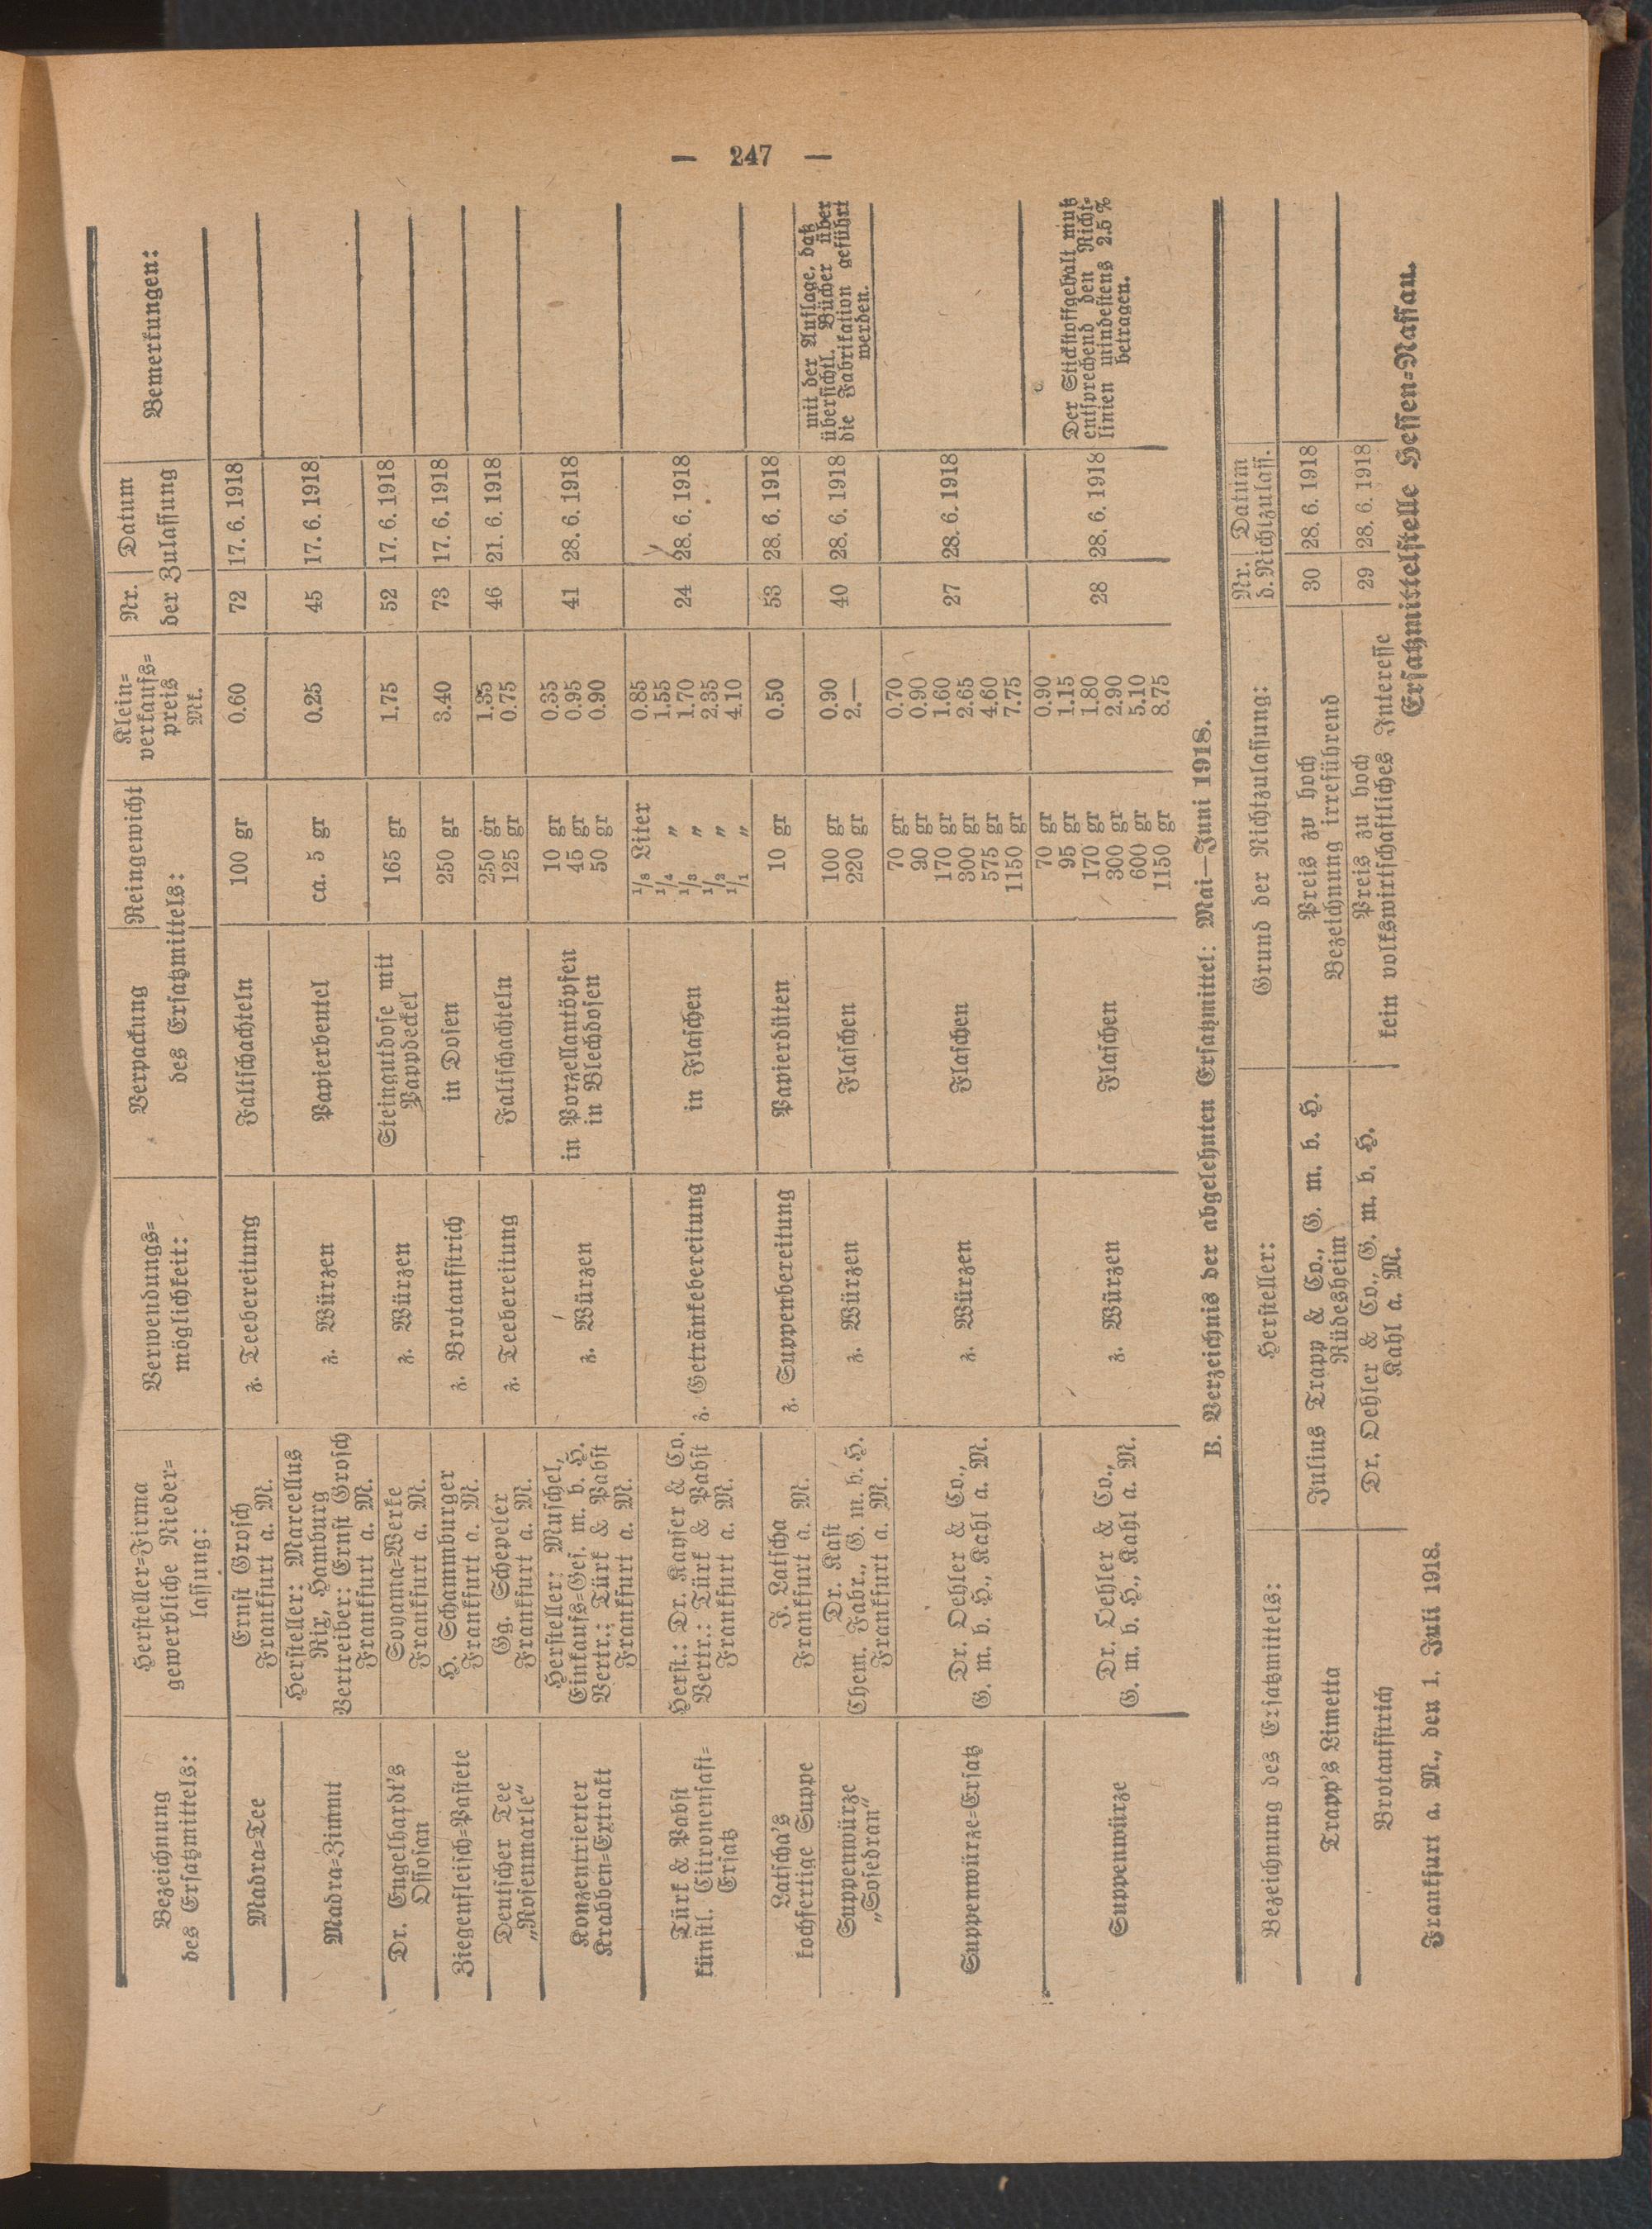 — 247 —
Bezeichnung
des Ersatzmittels:
Hersteller=Firma
gewerbliche Nieder=
lassung:
Verwendungs=
möglichkeit:
Verpackung
Reingewicht
des Ersatzmittels:
Klein=
verkaufs=
preis
Mk.
Nr.
Datum
der Zulassung
Bemerkungen:
Madra=Tee
Ernst Grosch
Frankfurt a. M.
z. Teebereitung
Faltschachteln
100 gr
0.60
72
17. 6. 1918
Madra=Zimmt
Hersteller: Marcellus
Rix, Hamburg
Vertreiber: Ernst Grosch
Frankfurt a. M.
z. Würzen
Papierbeutel
ca. 5 gr
0.25
45
17. 6. 1918
Dr. Engelhardt's
Ossosan
Soyama=Werke
Frankfurt a. M.
z. Würzen
Steingutdose mit
Pappdeckel
165 gr
1.75
52
17. 6. 1918
Ziegenfleisch=Pastete
H. Schammburger
Frankfurt a. M.
z. Brotaufstrich
in Dosen
250 gr
3.40
73
17. 6. 1918
Deutscher Tee
„Rosenmarle“
Gg. Schepeler
Frankfurt a. M.
z. Teebereitung
Faltschachteln
250 gr
125 gr
1.35
0.75
46
21. 6. 1918
Konzentrierter
Krabben=Extrakt
Hersteller: Muschel,
Einkaufs=Ges. m. b. H.
Vertr.: Türk & Pabst
Frankfurt a. M.
z. Würzen
in Porzellantöpfen
in Blechdosen
10 gr
45 gr
50 gr
0.35
0.95
0.90
41
28. 6. 1918
Türk & Pabst
künstl. Citronensaft=
Ersatz
Herst.: Dr. Kayser & Co.
Vertr.: Türk & Pabst
Frankfurt a. M.
z. Getränkebereitung
in Flaschen
1/8 Liter
1/4 „
1/3 „
1/2 „
1/1 „
0.85
1.55
1.70
2.35
4.10
24
28. 6. 1918
Latscha's
kochfertige Suppe
J. Latscha
Frankfurt a. M.
z. Suppenbereitung
Papierdüten
10 gr
0.50
53
28. 6. 1918
Suppenwürze
„Sosedran“
Dr. Kast
Chem. Fabr., G. m. b. H.
Frankfurt a. M.
z. Würzen
Flaschen
100 gr
220 gr
0.90
2.—
40
28. 6. 1918
mit der Auflage, daß
übersichtl. Bücher über
die Fabrikation geführt
werden.
Suppenwürze=Ersatz
Dr. Oehler & Co.,
G. m. b. H., Kahl a. M.
z. Würzen
Flaschen
70 gr
90 gr
170 gr
300 gr
575 gr
1150 gr
0.70
0.90
1.60
2.65
4.60
7.75
27
28. 6. 1918
Suppenwürze
Dr. Oehler & Co.,
G. m. b. H., Kahl a. M.
z. Würzen
Flaschen
70 gr
95 gr
170 gr
300 gr
600 gr
1150 gr
0.90
1.15
1.80
2.90
5.10
8.75
28
28. 6. 1918
Der Stickstoffgehalt muß
entsprechend den Richt=
linien mindestens 2.5 %
betragen.
B. Verzeichnis der abgelehnten Ersatzmittel: Mai—Juni 1918.
Bezeichnung des Ersatzmittels:
Hersteller:
Grund der Nichtzulassung:
Nr.
Datum
d. Nichtzulass.
Trapp's Limetta
Julius Trapp & Co., G. m. b. H.
Rüdesheim
Preis zu hoch
Bezeichnung irreführend
30
28. 6. 1918
Brotaufstrich
Dr. Oehler & Co., G. m. b. H.
Kahl a. M.
Preis zu hoch
kein volkswirtschaftliches Interesse
29
28. 6. 1918
Frankfurt a. M., den 1. Juli 1918.
Ersatzmittelstelle Hessen=Nassau.